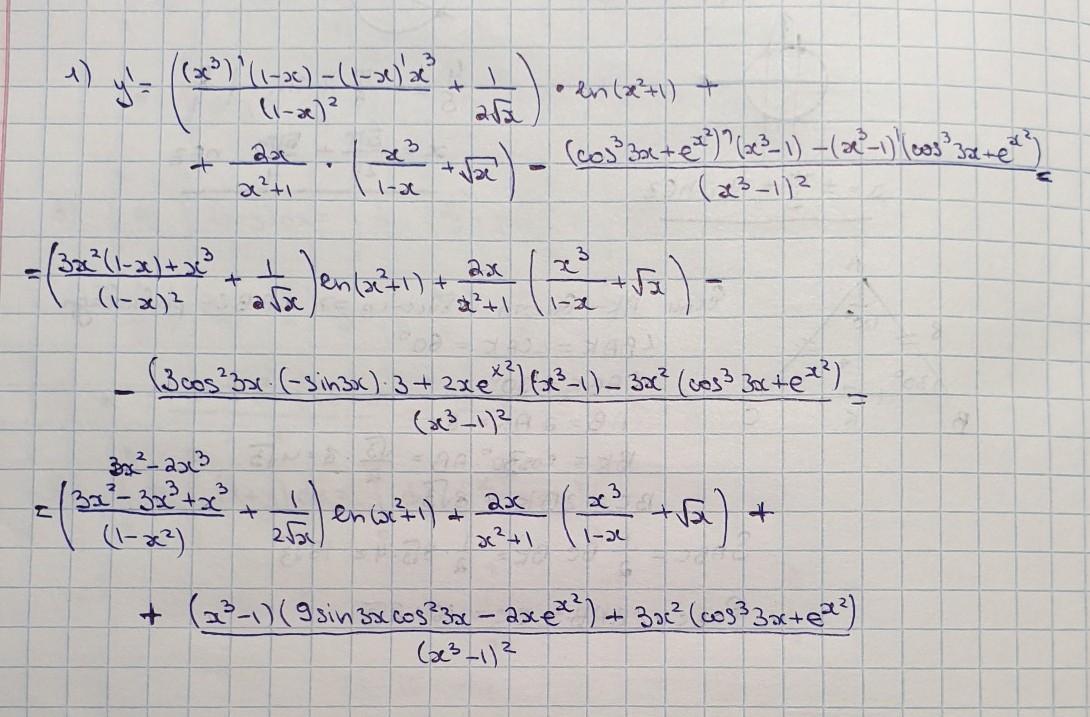 1) y' = ((x³)'(1-x) - (1-x)'x³ / (1-x)² + 1 / 2√x) · ln(x²+1) +
+ 2x / x²+1 · (x³ / 1-x + √x) - (cos³3x + e^x²)'(x³-1) - (x³-1)'(cos³3x + e^x²) / (x³-1)² =
= (3x²(1-x) + x³ / (1-x)² + 1 / 2√x) ln(x²+1) + 2x / x²+1 (x³ / 1-x + √x) -
- (3cos²3x · (-sin3x) · 3 + 2xe^x²)(x³-1) - 3x²(cos³3x + e^x²) / (x³-1)² =
3x² - 2x³
= (3x² - 3x³ + x³ / (1-x²) + 1 / 2√x) ln(x²+1) + 2x / x²+1 (x³ / 1-x + √x) +
+ (x³-1)(9sin3xcos²3x - 2xe^x²) + 3x²(cos³3x + e^x²) / (x³-1)²